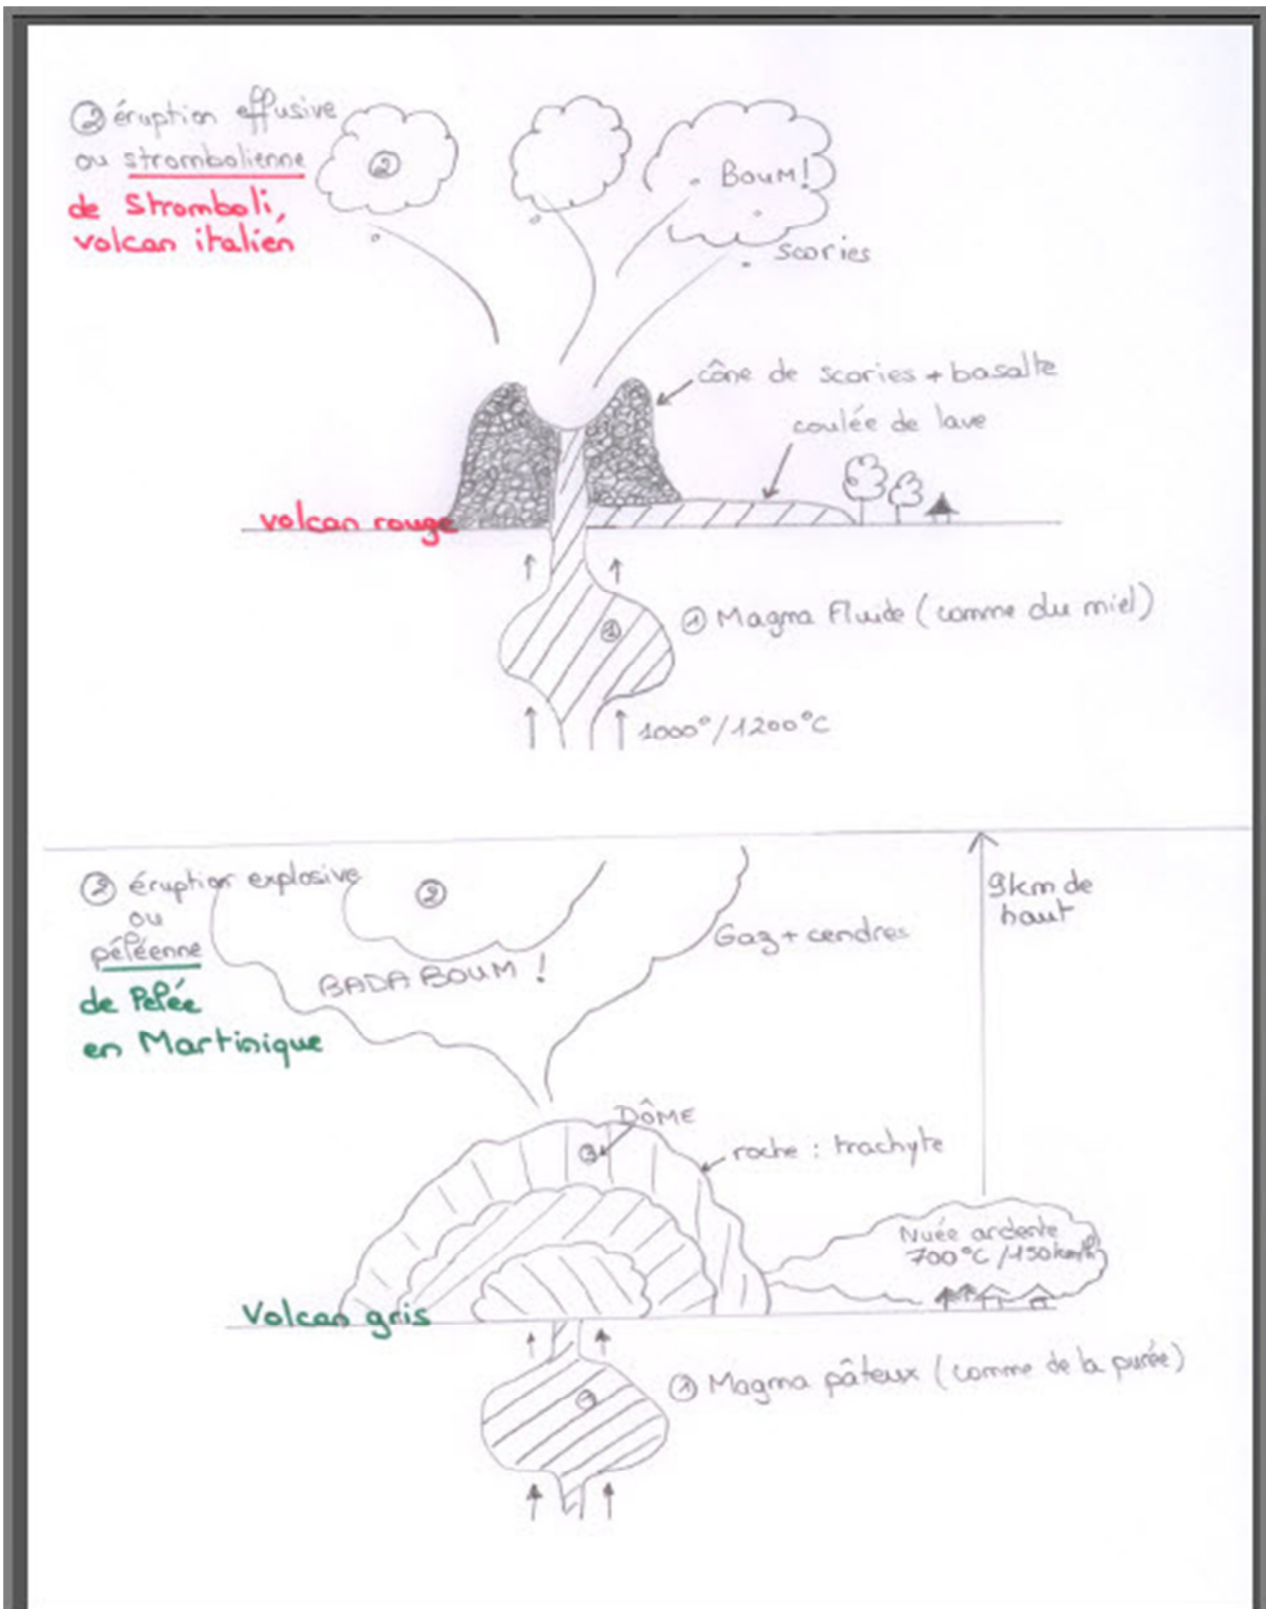 ② éruption effusive
ou strombolienne
de Stromboli,
volcan italien
②
Boum!
scories
cône de scories + basalte
coulée de lave
volcan rouge
①
① Magma Fluide (comme du miel)
1000°/1200°C
② éruption explosive
ou
péléenne
de Pelée
en Martinique
②
BADABOUM !
Gaz + cendres
9km de
haut
DÔME
③
roche : trachyte
Nuée ardente
700°C /150km/h
Volcan gris
①
① Magma pâteux (comme de la purée)